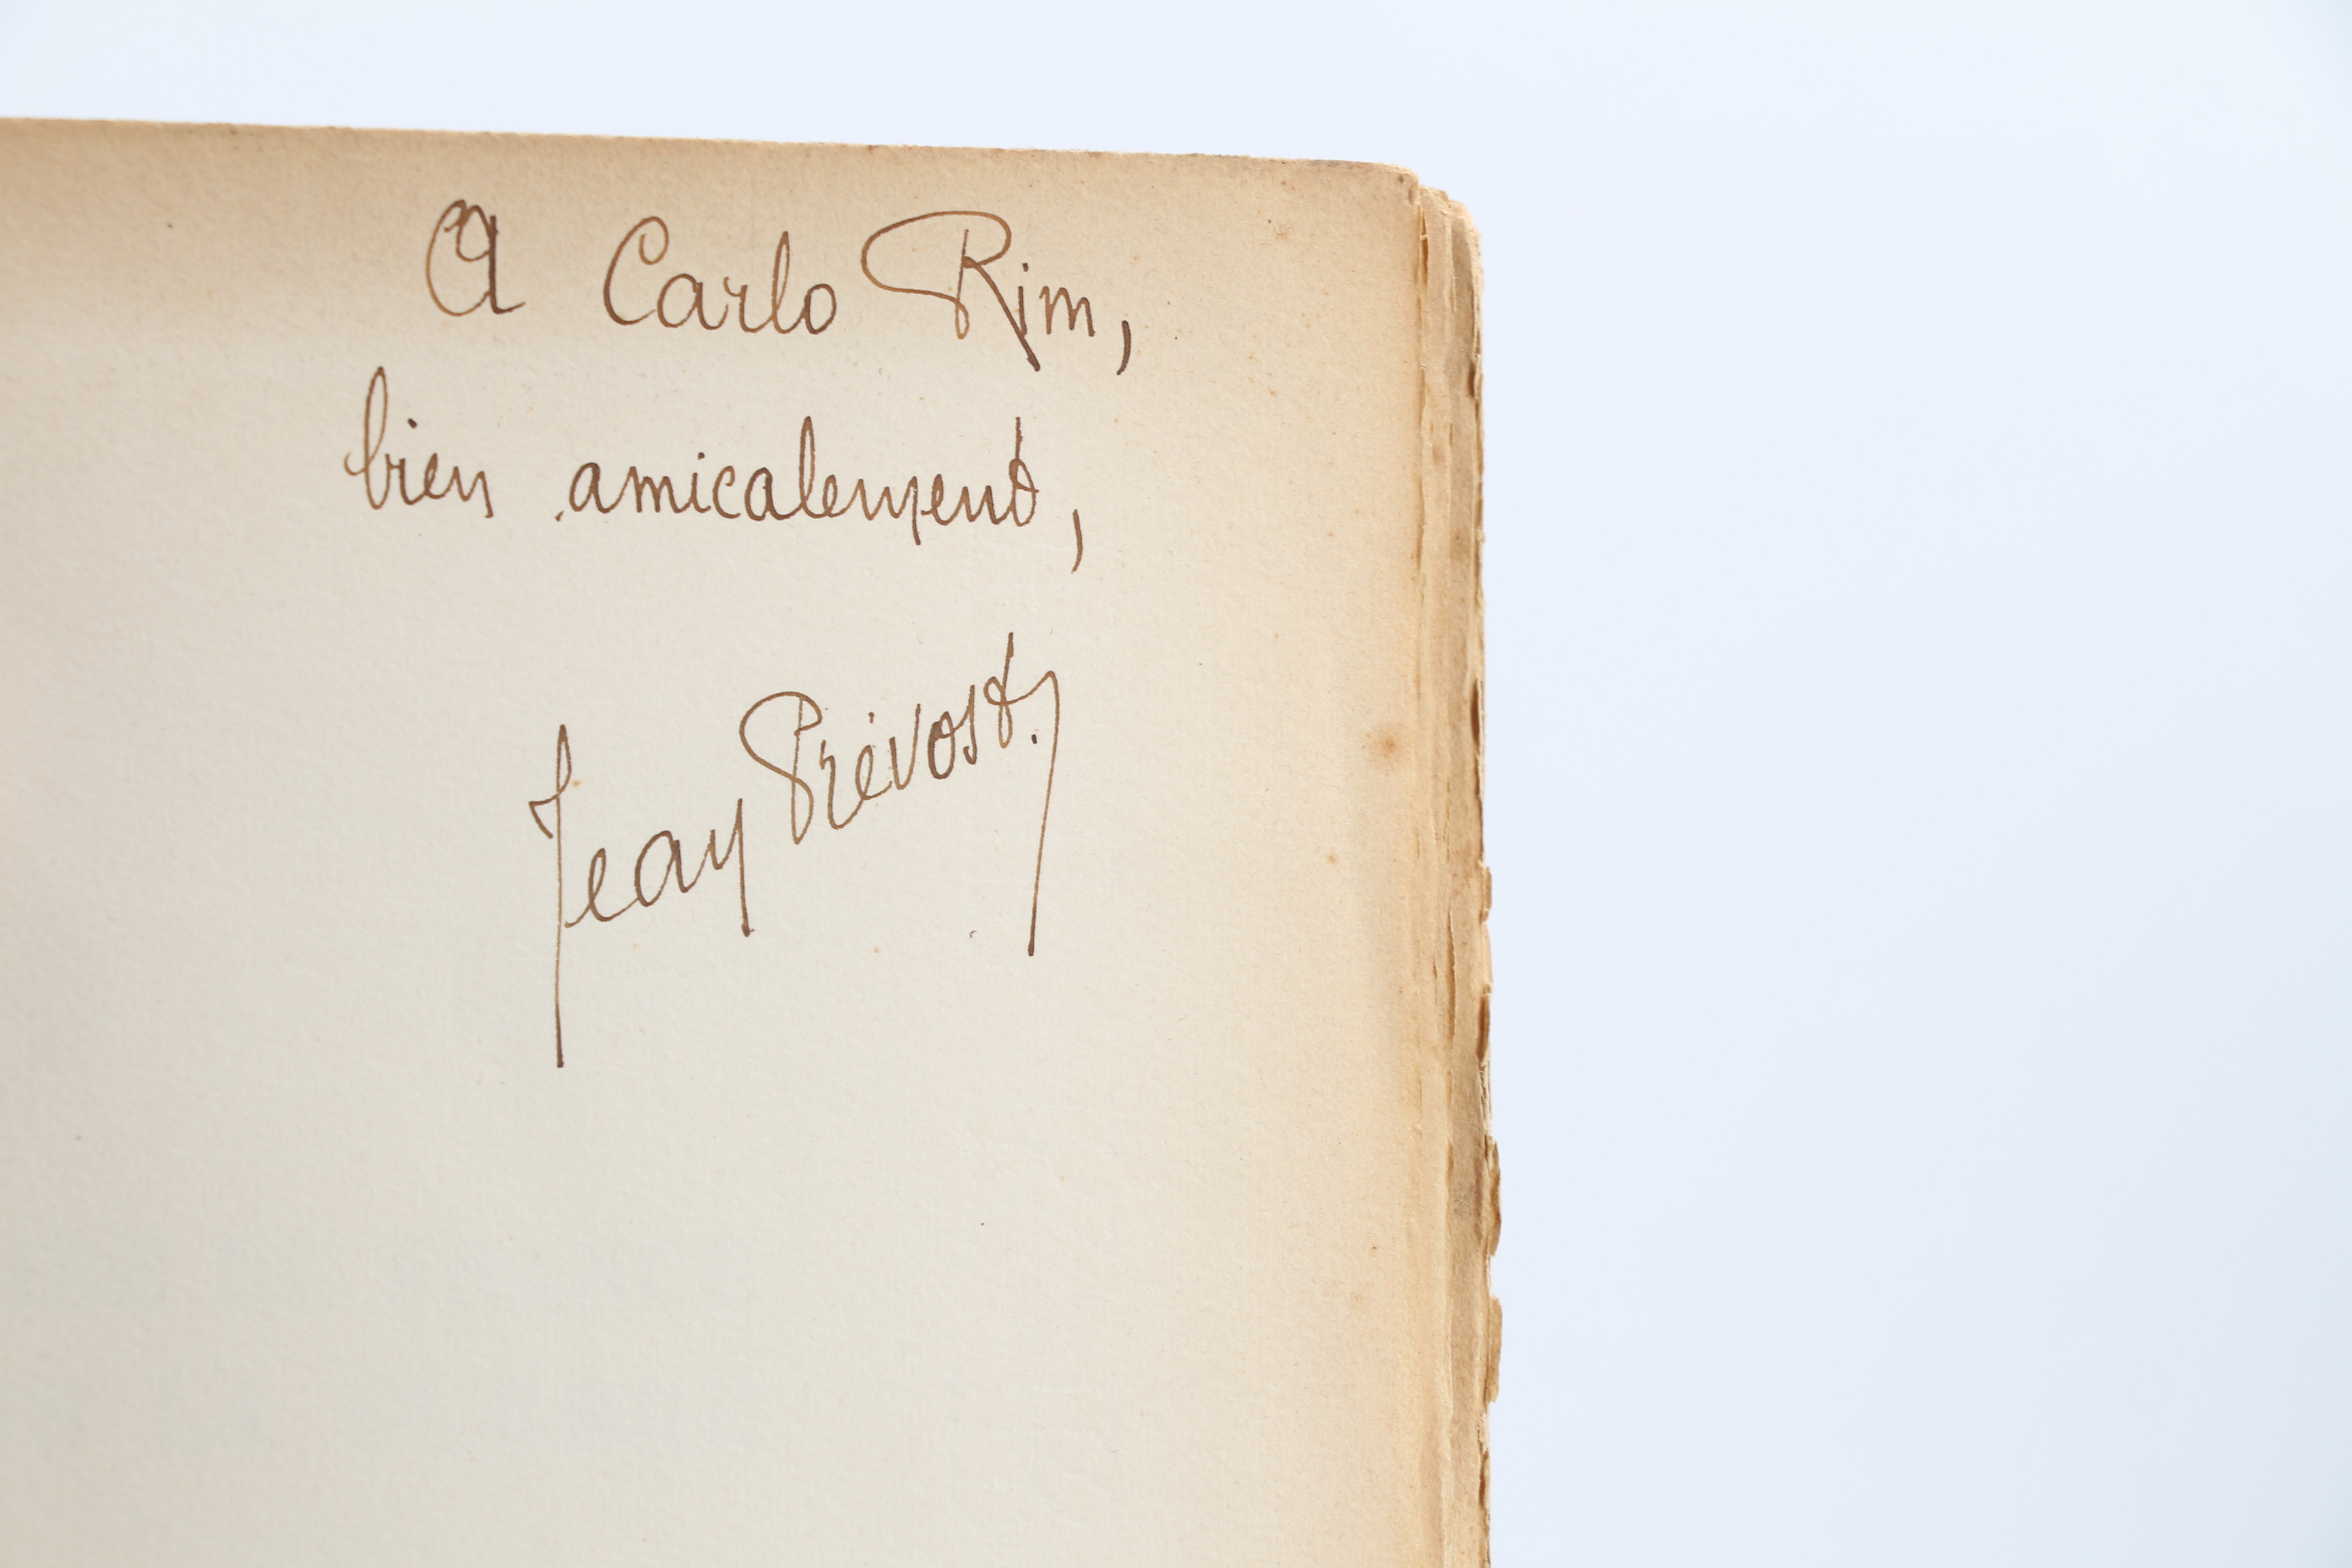 A Carlo Rim,
bien amicalement,
Jean Prévost.